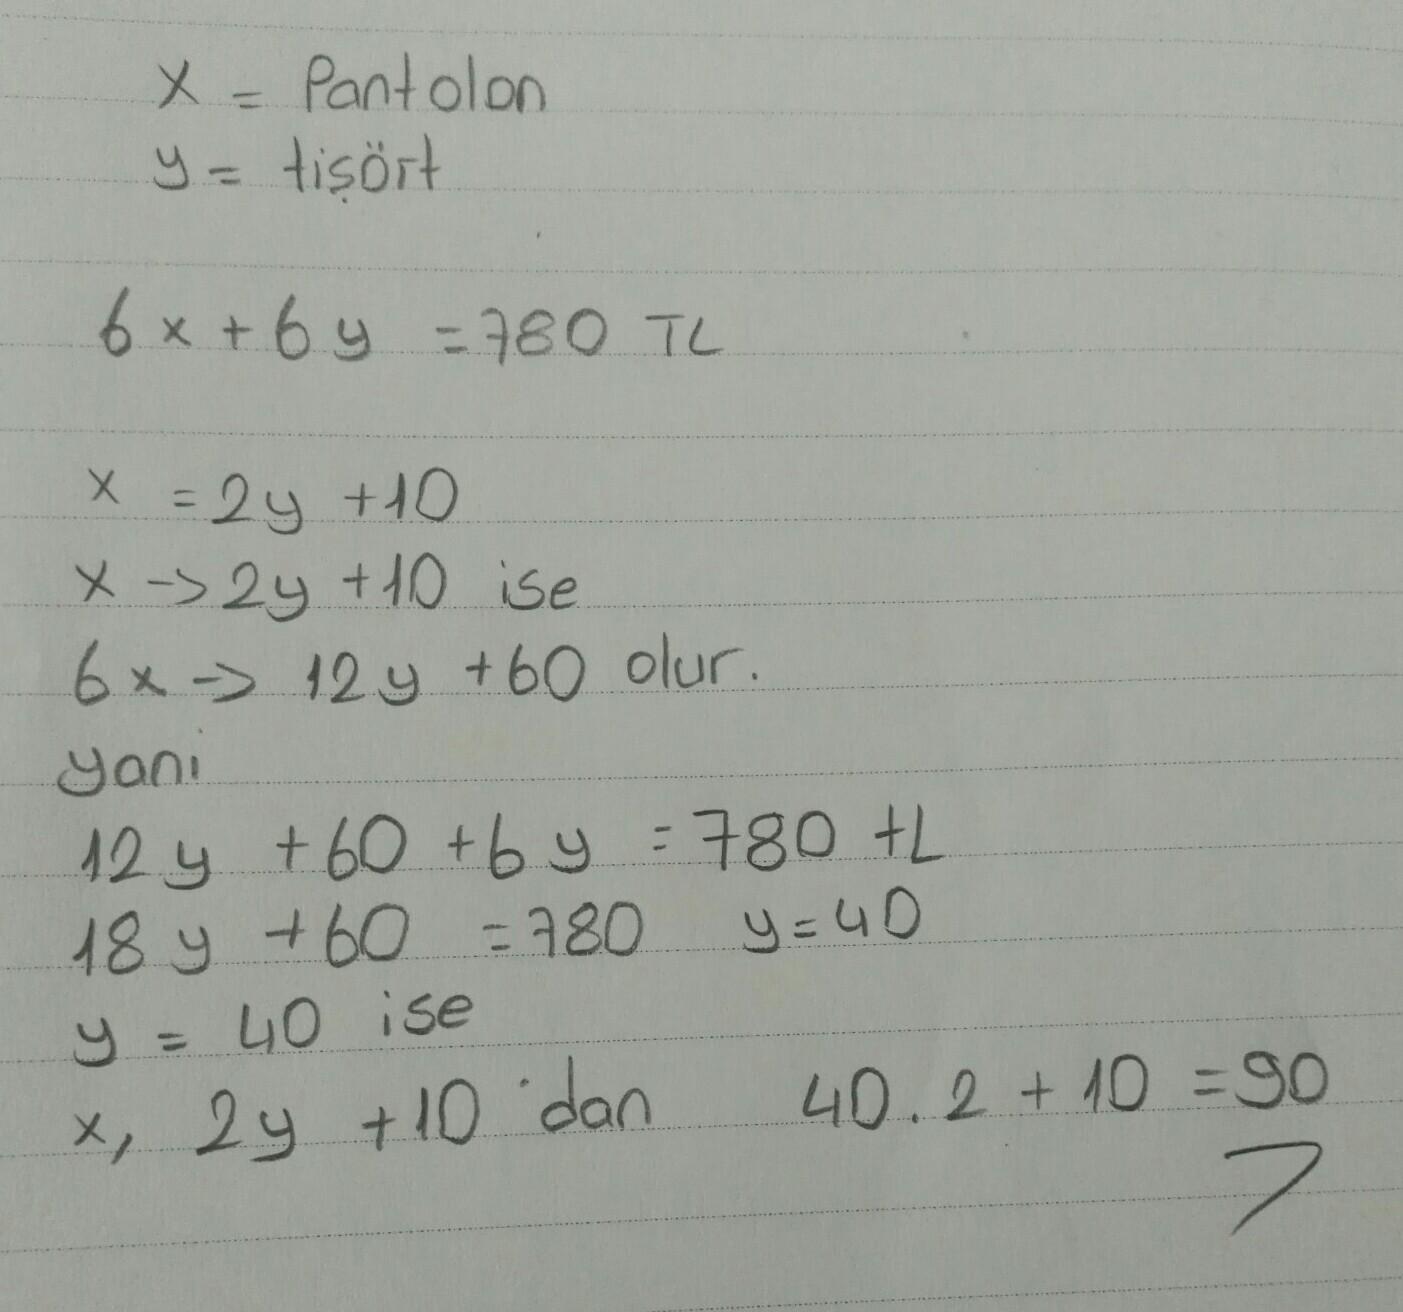 x = Pantolon
y = tişört
6x + 6y = 780 TL
x = 2y + 10
x -> 2y + 10 ise
6x -> 12y + 60 olur.
yani
12y + 60 + 6y = 780 tL
18y + 60 = 780 y = 40
y = 40 ise
x, 2y + 10 'dan 40.2 + 10 = 90